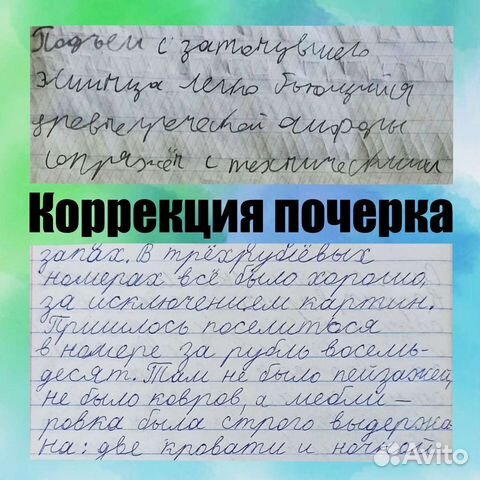 Подъем с затонувшего
Эгинца легко бьющийся
древнегреческой амфоры
сопряжён с техническими
Коррекция почерка
запах. В трёхрублёвых
номерах всё было хорошо,
за исключением картин.
Пришлось поселиться
в номере за рубль восемь-
десят. Там не было пейзажей,
не было ковров, а мебли-
ровка была строго выдержа-
на: две кровати и ночной
Avito